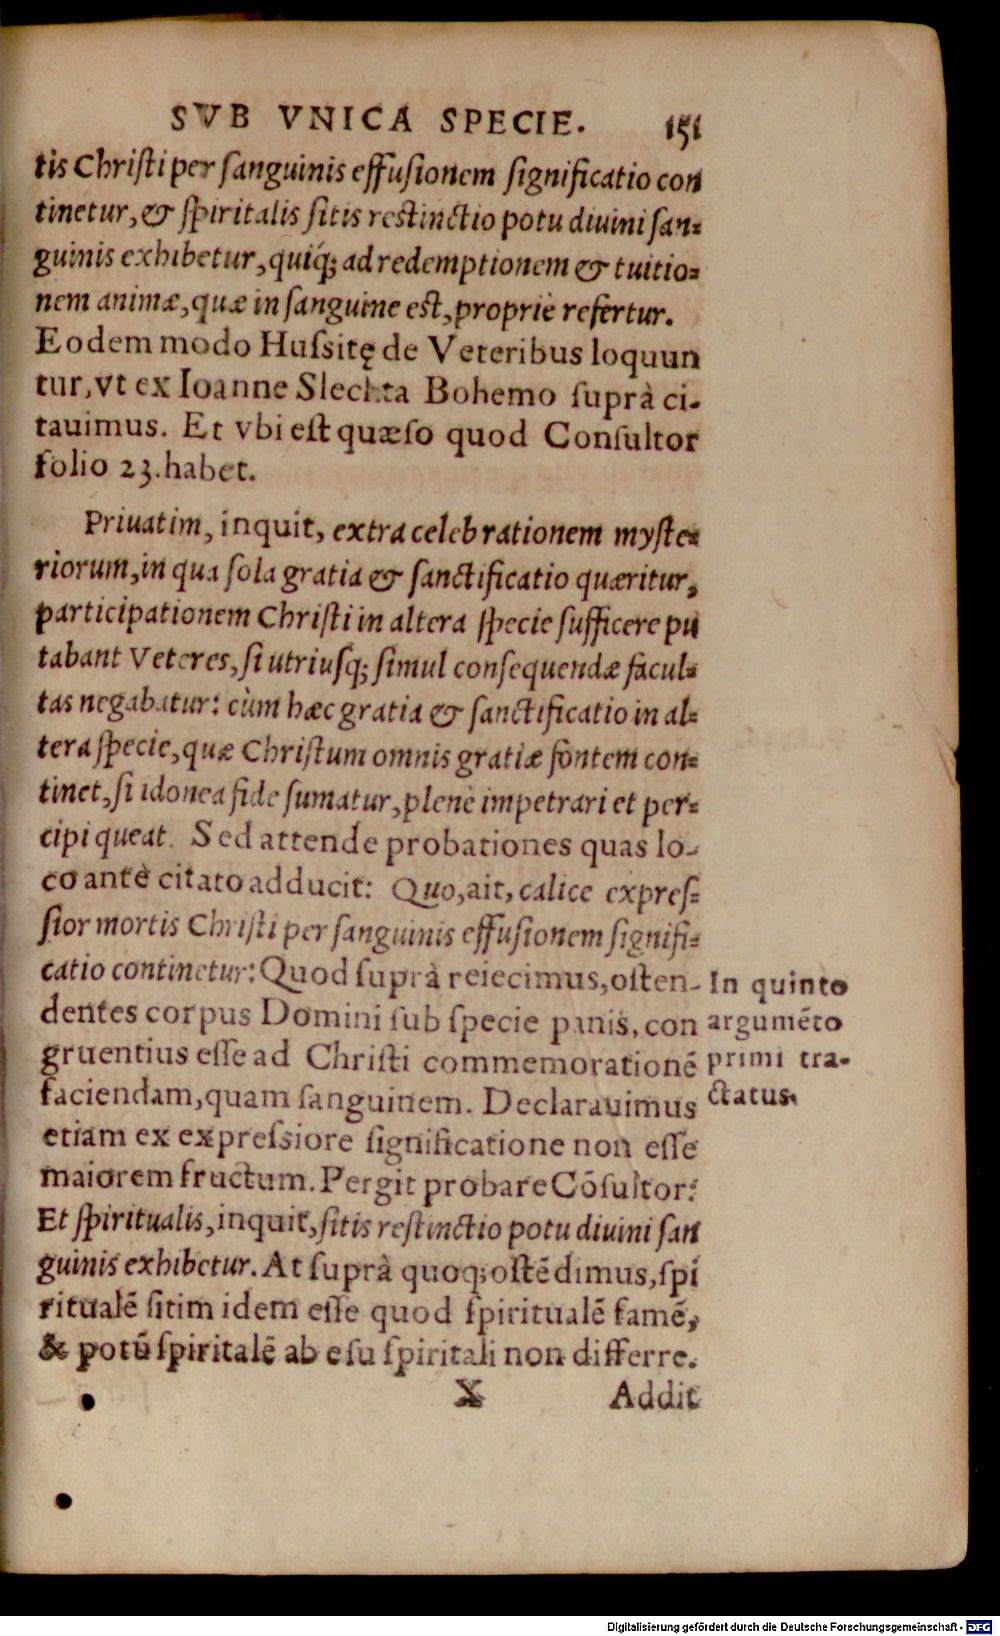 SVB VNICA SPECIE. 151
tis Chriſti per ſanguinis effuſionem ſignificatio con
tinetur, & ſpiritalis ſitis reſtinctio potu diuini ſan-
guinis exhibetur, quíq; ad redemptionem & tuitio-
nem animæ, quæ in ſanguine eſt, propriè refertur.
Eodem modo Huſsitę de Veteribus loquun
tur, vt ex Ioanne Slechta Bohemo ſuprà ci-
tauimus. Et vbi eſt quæso quod Conſultor
folio 23. habet.
Priuatim, inquit, extra celebrationem myſte-
riorum, in qua ſola gratia & ſanctificatio quæritur,
participationem Chriſti in altera ſpecie ſufficere pu
tabant Veteres, ſi utriuſq; ſimul conſequendæ facul-
tas negabatur: cùm hæc gratia & ſanctificatio in al-
tera ſpecie, quæ Chriſtum omnis gratiæ fontem con-
tinet, ſi idonea fide ſumatur, plenè impetrari et per-
cipi queat. Sed attende probationes quas lo-
co antè citato adducit: Quo, ait, calice expreſ-
ſior mortis Chriſti per ſanguinis effuſionem ſignifi-
catio continetur: Quod ſuprà reiecimus, oſten-
dentes corpus Domini ſub ſpecie panis, con
gruentius eſſe ad Chriſti commemorationē
faciendam, quam ſanguinem. Declarauimus
etiam ex expreſsiore ſignificatione non eſſe
maiorem fructum. Pergit probare Cōſultor:
Et ſpiritualis, inquit, ſitis reſtinctio potu diuini ſan
guinis exhibetur. At ſuprà quoq; oſtēdimus, ſpi
ritualē ſitim idem eſſe quod ſpiritualē famē,
& potū ſpiritalē ab eſu ſpiritali non differre.
X Addit
In quinto
argumēto
primi tra-
ctatus.
Digitalisierung gefördert durch die Deutsche Forschungsgemeinschaft - DFG